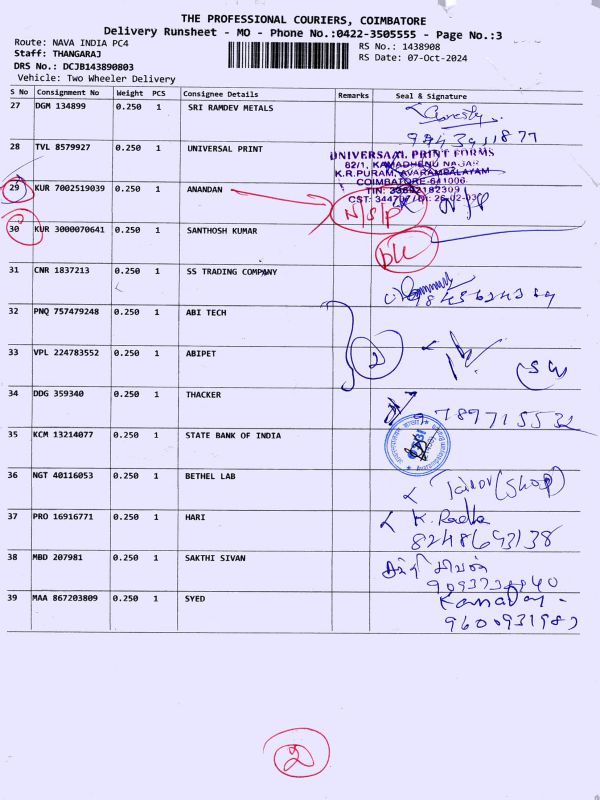 THE PROFESSIONAL COURIERS, COIMBATORE
Delivery Runsheet - MO - Phone No.:0422-3505555 - Page No.:3
Route: NAVA INDIA PC4
RS No.: 1438908
Staff: THANGARAJ
RS Date: 07-Oct-2024
DRS No.: DCJB143890803
Vehicle: Two Wheeler Delivery
S No Consignment No Weight PCS Consignee Details Remarks Seal & Signature
27 DGM 134899 0.250 1 SRI RAMDEV METALS
28 TVL 8579927 0.250 1 UNIVERSAL PRINT
UNIVERSAAL PRINT FORMS
82/1, KAMADHENU NAGAR
K.R.PURAM, AVARAMPALAYAM
COIMBATORE-641006
29 KUR 7002519039 0.250 1 ANANDAN
N/S/P
30 KUR 3000070641 0.250 1 SANTHOSH KUMAR
DL
31 CNR 1837213 0.250 1 SS TRADING COMPANY
32 PNQ 757479248 0.250 1 ABI TECH
33 VPL 224783552 0.250 1 ABIPET
2
34 DDG 359340 0.250 1 THACKER
9789715532
35 KCM 13214077 0.250 1 STATE BANK OF INDIA
36 NGT 40116053 0.250 1 BETHEL LAB
(Shop)
37 PRO 16916771 0.250 1 HARI
K. Radha
8248693138
38 MBD 207981 0.250 1 SAKTHI SIVAN
39 MAA 867203809 0.250 1 SYED
2